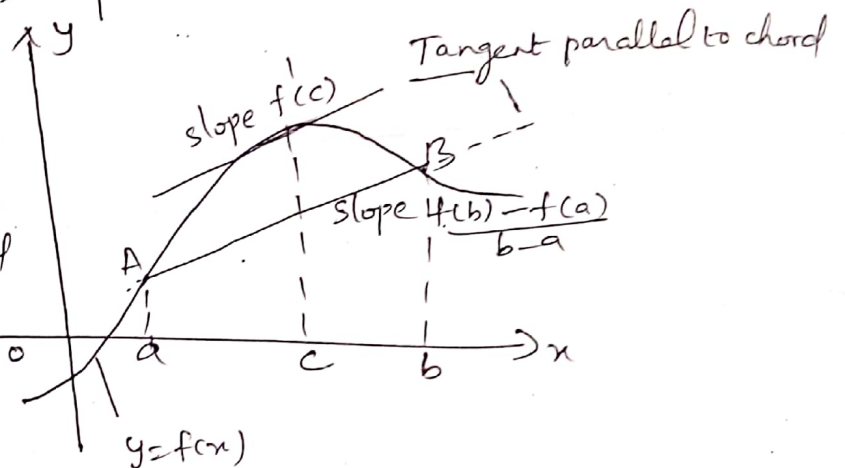 y
Tangent parallel to chord
slope f'(c)
B
slope f(b)-f(a)
b-a
A
o
a
c
b
x
y=f(x)